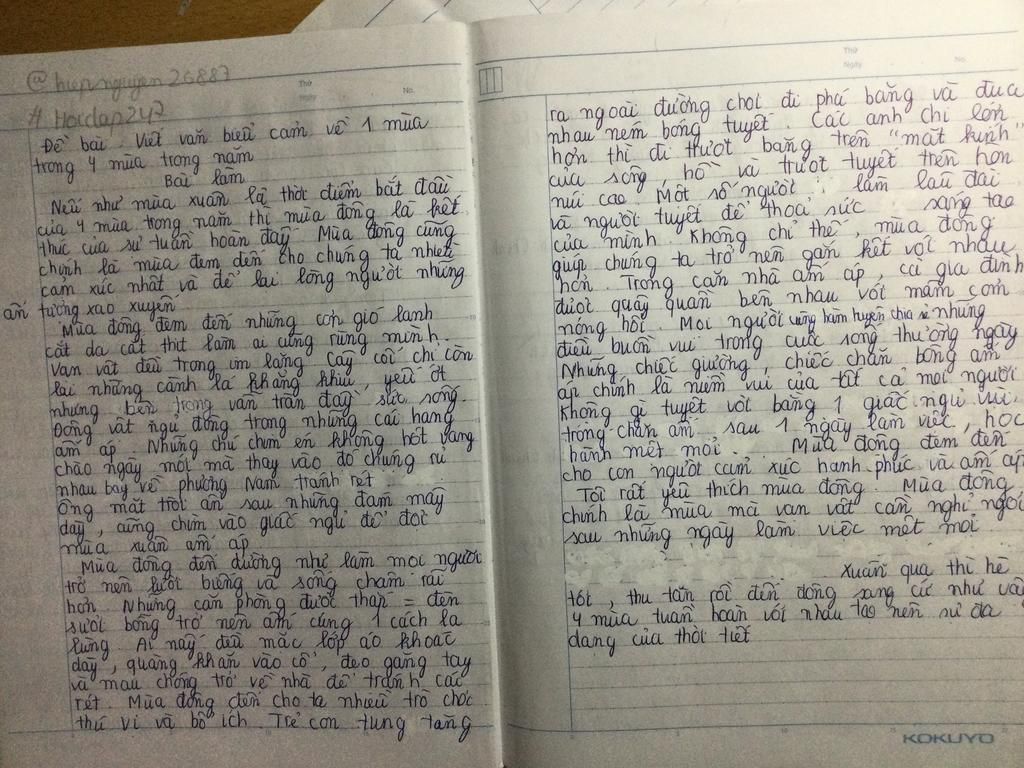 @hiepnguyen26887
# Hoidap247
Thứ
Ngày
No.
Đề bài : Viết văn biểu cảm về 1 mùa
trong 4 mùa trong năm
Bài làm
Nếu như mùa xuân là thời điểm bắt đầu
của 4 mùa trong năm thì mùa đông là kết
thúc của sự tuần hoàn đấy. Mùa đông cũng
chính là mùa đem đến cho chúng ta nhiều
cảm xúc nhất và để lại lòng người những
ấn tượng xao xuyến
Mùa đông đem đến những cơn gió lạnh
cắt da cắt thịt làm ai cũng rùng mình.
Vạn vật đều trong im lặng. Cây cối chỉ còn
lại những cành lá khẳng khiu, yếu ớt
nhưng bên trong vẫn tràn đầy sức sống.
Động vật ngủ đông trong những cái hang
ấm áp. Những chú chim én không hót vang
chào ngày mới mà thay vào đó chúng rủ
nhau bay về phương Nam tránh rét.
Ông mặt trời ẩn sau những đám mây
dày, cũng chìm vào giấc ngủ để đợi
mùa xuân ấm áp.
Mùa đông đến dường như làm mọi người
trở nên lười biếng và sống chậm rãi
hơn. Những căn phòng được thắp = đèn
sưởi bỗng trở nên ấm cúng 1 cách lạ
lùng. Ai nấy đều mặc lớp áo khoác
dày, quàng khăn vào cổ, đeo găng tay
và mau chóng trở về nhà để tránh cái
rét. Mùa đông đến cho ta nhiều trò chơi
thú vị và bổ ích. Trẻ con tung tăng
Thứ
Ngày
No.
ra ngoài đường chơi đi phá băng và đua
nhau ném bóng tuyết. Các anh chị lớn
hơn thì đi trượt băng trên "mặt kính"
của sông, hồ và trượt tuyết trên hòn
núi cao. Một số người làm lâu đài
và người tuyết để thoả sức sáng tạo
của mình. Không chỉ thế, mùa đông
giúp chúng ta trở nên gắn kết với nhau
hơn. Trong căn nhà ấm áp, cả gia đình
được quây quần bên nhau với mâm cơm
nóng hổi. Mọi người cùng hàm huyên chia sẻ những
điều buồn vui trong cuộc sống thường ngày
Những chiếc giường, chiếc chăn bông ấm
áp chính là niềm vui của tất cả mọi người
Không gì tuyệt vời bằng 1 giấc ngủ vùi
trong chăn ấm sau 1 ngày làm việc, học
hành mệt mỏi. Mùa đông đem đến
cho con người cảm xúc hạnh phúc và ấm áp
Tôi rất yêu thích mùa đông. Mùa đông
chính là mùa mà vạn vật cần nghỉ ngơi
sau những ngày làm việc mệt mỏi
Xuân qua thì hè
tới, thu tàn rồi đến đông sang cứ như vậy
4 mùa tuần hoàn với nhau tạo nên sự đa
dạng của thời tiết
KOKUYO